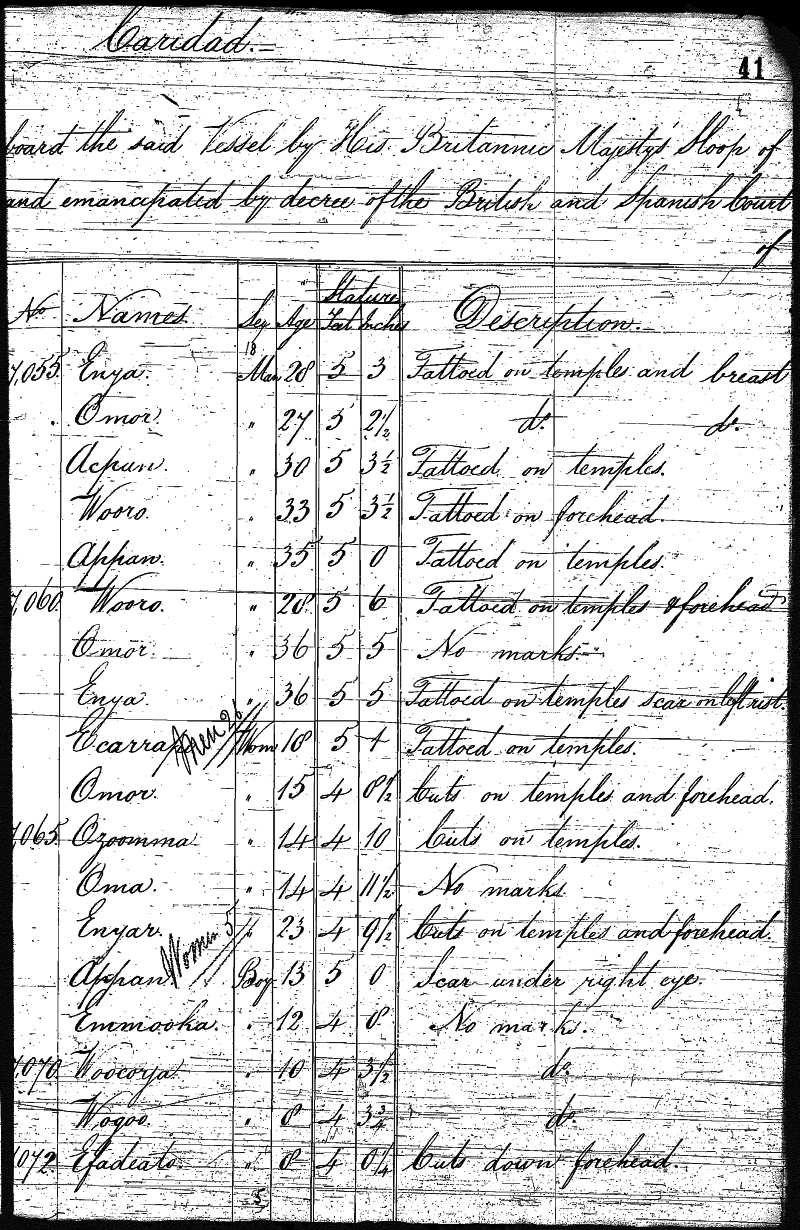 Caridad.=
41
board the said Vessel by His Britannic Majesty's Sloop of
and emancipated by decree of the British and Spanish Court
of
No Names Sex Age Stature Feet Inches Description.
18
7,055. Enya. Man 28 5 3 Tattoed on temples and breast
Omor. " 27 5 2½ do. do.
Acpan. " 30 5 3½ Tattoed on temples.
Wooro. " 33 5 3½ Tattoed on forehead.
Appan. " 35 5 0 Tattoed on temples.
7,060. Wooro. " 28 5 6 Tattoed on temples & forehead
Omor. " 36 5 5 No marks.
Enya. " 36 5 5 Tattoed on temples scar on left rist.
Men 26
Ecarra Wom 18 5 1 Tattoed on temples.
Omor. " 15 4 8½ Cuts on temples and forehead.
7,065. Ozoomma. " 14 4 10 Cuts on temples.
Oma. " 14 4 11½ No marks
Enyar. " 23 4 9½ Cuts on temples and forehead.
Women 5
Appan. Boy 13 5 0 Scar under right eye.
Emmooka. " 12 4 8 No marks.
7,070. Woocorya " 10 4 3½ do.
Wogoo. " 8 4 3¾ do.
7,072. Efadeato. " 8 4 0¼ Cuts down forehead.
5